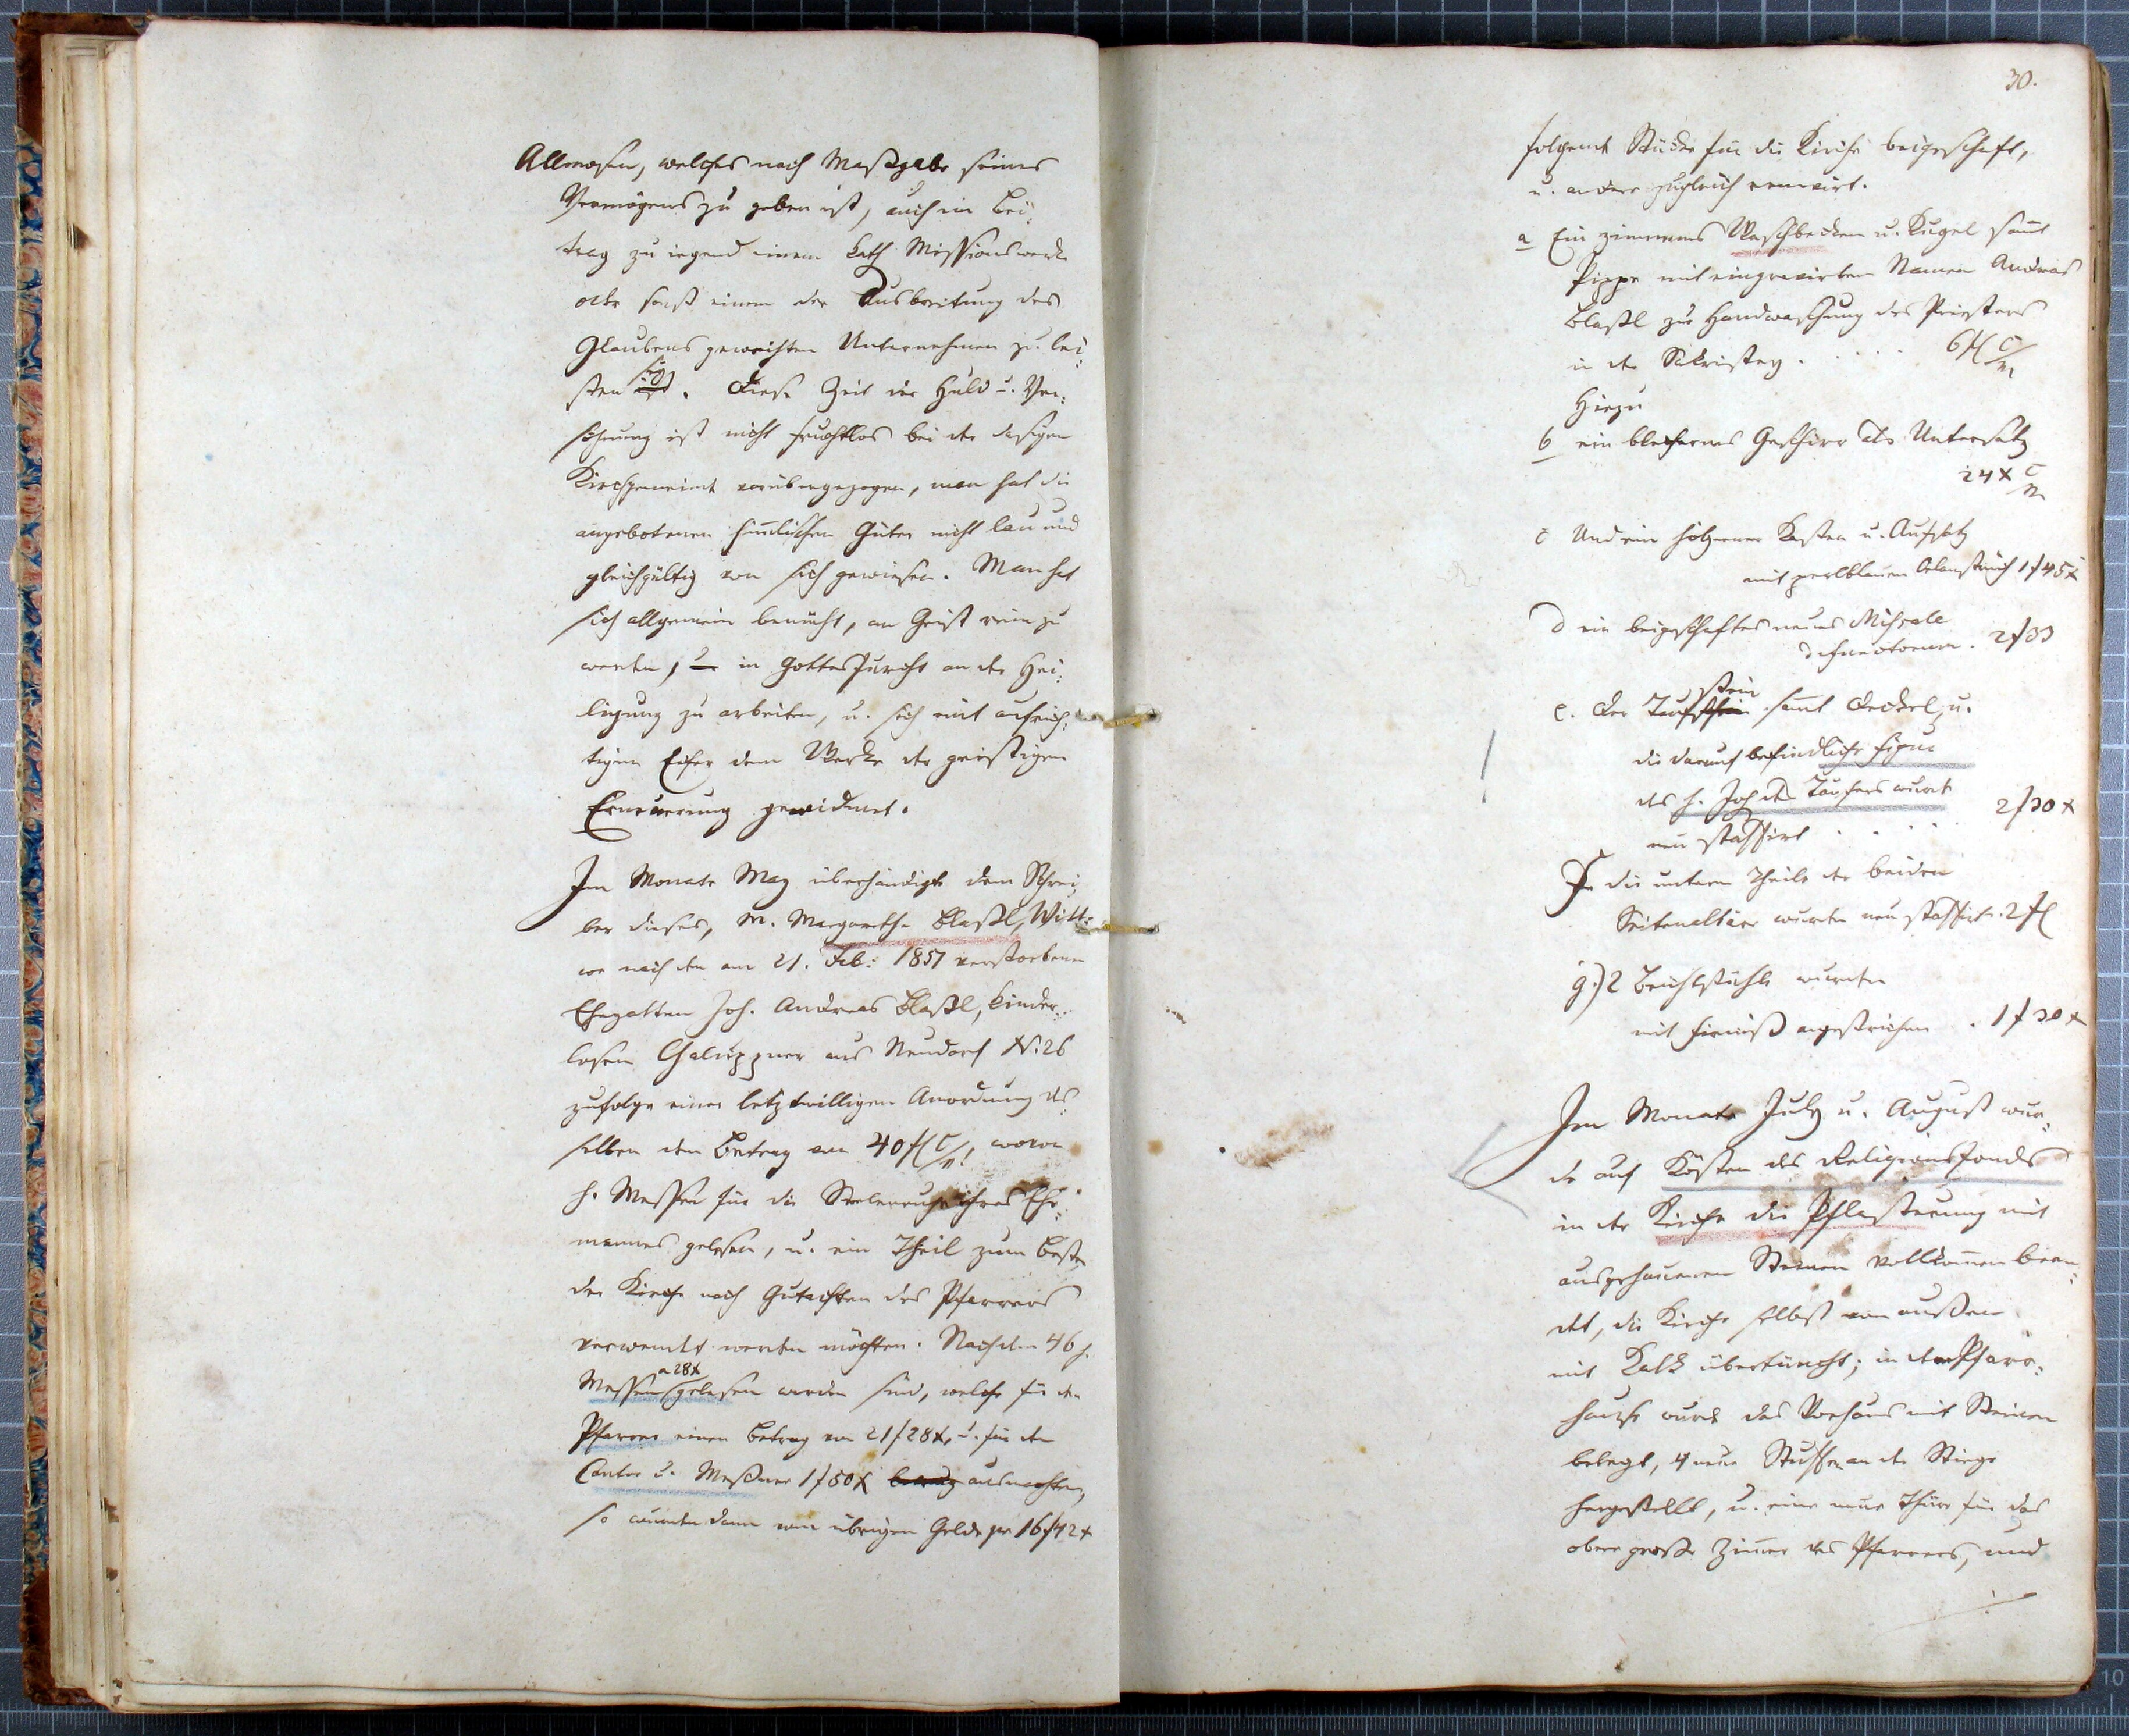 Allmosen, welches nach Maßgabe seines
Vermögens zu geben ist, auch ein Bei-
trag zu irgend einem kath Missionswerke
oder sonst einem der Ausbreitung des
Glaubens geweihten Unternehmen zu lei-
sten ist. Diese Zeit der Huld u. Ver-
söhnung ist nicht fruchtlos bei der dasigen
Kirchgemeinde vorübergezogen, man hat die
angebotenen himlischen Güter nicht lau und
gleichgültig von sich gewiesen. Man hat
sich allgemein bemüht, am Geist rein zu
werden, u in Gottesfurcht an der Hei-
ligung zu arbeiten, u. sich mit aufrich-
tigem Eifer dem Werke der geistigen
Erneuerung gewidmet.
Im Monate May überhändigte dem Schrei-
ber dieses, M. Margareth Blaßl, Witt-
we nach den am 21. Feb: 1851 verstorbenen
Ehegatten Joh. Andreas Blaßl, kinder-
losen Chaluppner aus Neudorf N. 26
zufolge einer letztwilligen Anordnung des-
selben den Betrag von 40 fl C/M, wovon
h. Messen für die Seelenruhe ihres Ehe-
mannes gelesen, u. ein Theil zum Besten
der Kirche nach Gutachten des Pfarrers
verwendet werden möchten. Nachdem 46 h.
a 28x
Messen gelesen worden sind, welche für den
Pfarrer einen Betrag von 21 f 28x, u. für den
Cantor u. Meßner 1 f 50x betrag ausmachten,
so wurden dann vom übrigen Gelde pr 16 f 42x
30.
folgende Stücke für die Kirche beigeschaft,
u. andere zugleich renovirt.
a Ein zinnernes Waschbecken u. Kugel samt
Pippe mit eingravirtem Namen Andreas
Blaßl zur Handwaschung des Priesters
in der Sakristey . . . . 6 fl C/M
Hiezu
b ein blechernes Geschirr als Untersatz
24x C/M
c Und ein hölzerner Kasten u. Aufsatz
mit perlblauem Oelanstrich 1 f 45x
d ein beigeschaftes neues Missale
defunctorum . 2 f 33
stein
e. der Taufstein samt Deckel, u.
die darauf befindliche Figur
des h. Joh des Täufers wurde
neu staffirt . . . . 2 f 30x
F die untern Theile der beiden
Seitenaltäre wurden neu staffirt . 2 fl
g.) 2 Beichtstühle wurden
mit Firniß angestrichen . 1 f 30x
Im Monate July u. August wur-
de auf Kosten des Religionsfonds
in der Kirche die Pflasterung mit
ausgehauenen Steinen vollkomen been-
det, die Kirche selbst von außen
mit Kalk übertüncht; in dem Pfarr-
hause wurde das Vorhaus mit Steinen
belegt, 4 neue Stuffen an der Stiege
hergestellt, u. eine neue Thüre für das
obere große Zimer des Pfarrers, und